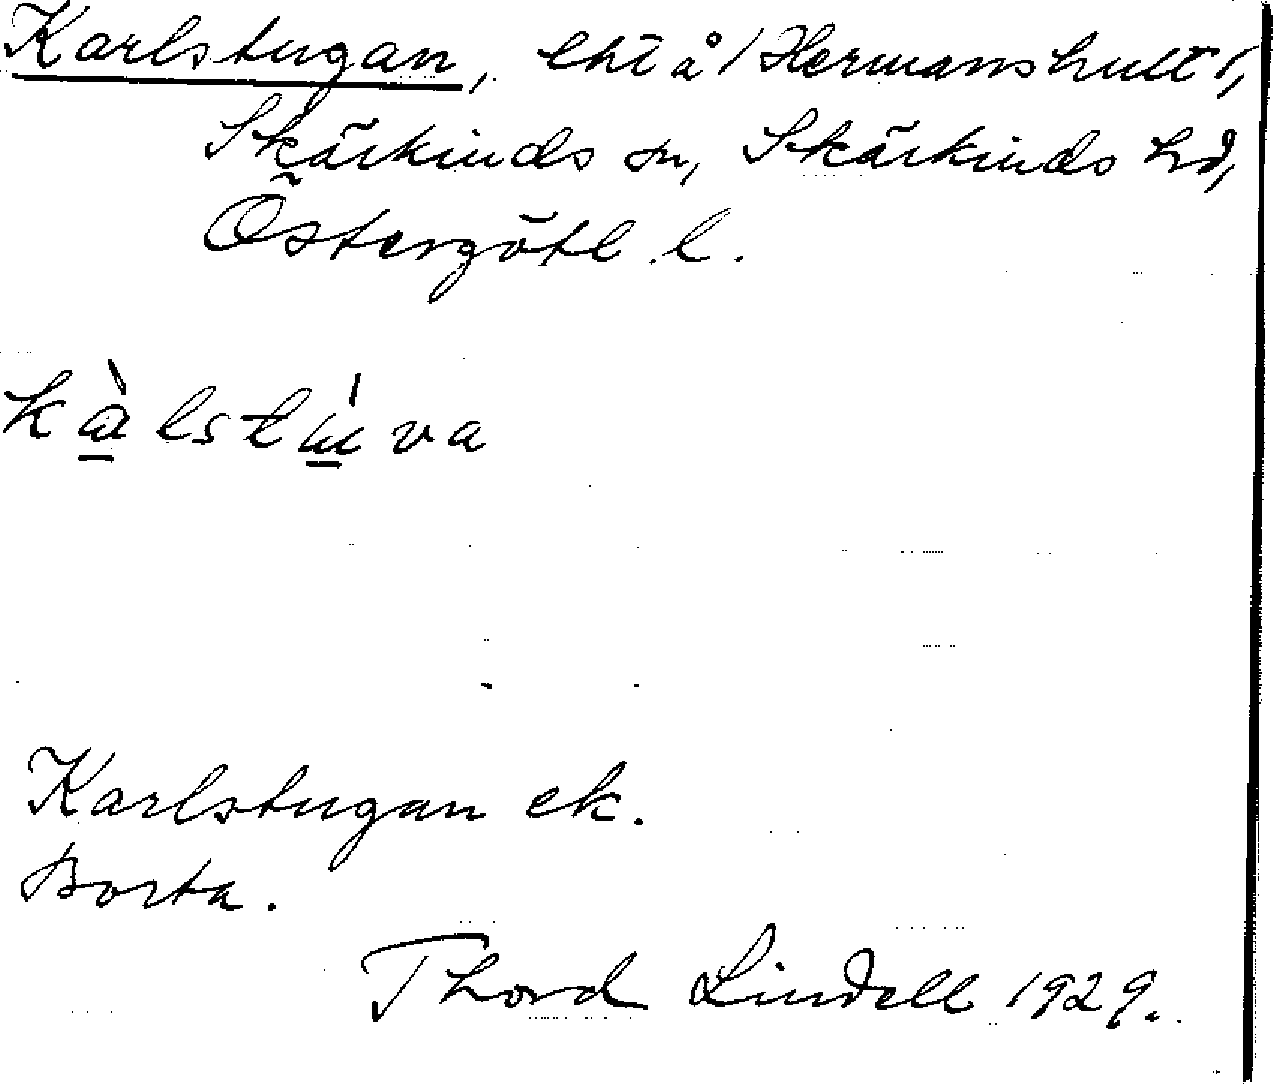 Karlstugan, lht å / Hermanshult 1,
Skärkinds sn, Skärkinds hd,
Östergötl. l.
kàlstúva
Karlstugan ek.
Borta.
Thord Lindell 1929.